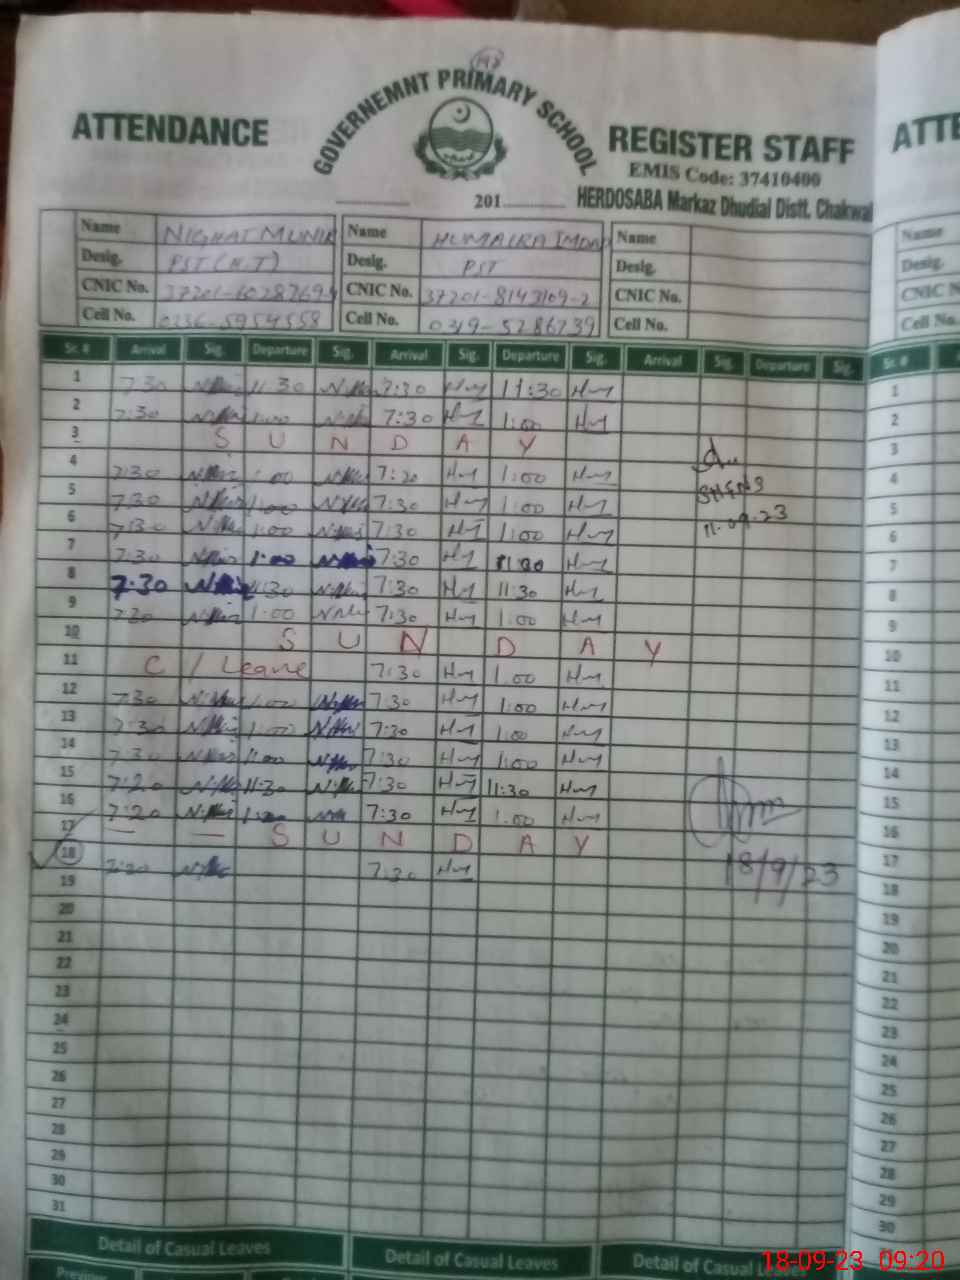 148
GOVERNEMNT PRIMARY SCHOOL
ATTENDANCE
REGISTER STAFF
ATTE
EMIS Code: 37410400
201
HERDOSABA Markaz Dhudial Distt. Chakwal
Name NIGHAT MUNIR Name HUMAIRA IMDAD Name
Name
Desig. PST (H.T) Desig. PST Desig.
CNIC No. CNIC No. 37201-8143109-2 CNIC No.
CNIC N
Cell No. 0336-5954558 Cell No. 0319-5286739 Cell No.
Cell No.
Sr. # Arrival Sig. Departure Sig. Arrival Sig. Departure Sig. Arrival Sig. Departure Sig.
Sr. #
1 7:30 11:30 7:30 Hm 11:30 Hm
2 7:30 1:00 7:30 Hm 1:00 Hm
3 S U N D A Y
4 7:30 1:00 7:30 Hm 1:00 Hm
5 7:30 1:00 7:30 Hm 1:00 Hm
6 7:30 1:00 7:30 Hm 1:00 Hm
11-09-23
7 7:30 1:00 7:30 Hm Hm
8 7:30 11:30 7:30 Hm 11:30 Hm
9 7:30 1:00 7:30 Hm 1:00 Hm
10 S U N D A Y
11 C / Leave 7:30 Hm 1:00 Hm
12 7:30 1:00 7:30 Hm 1:00 Hm
13 7:30 1:00 7:30 Hm 1:00 Hm
14 7:30 1:00 7:30 Hm 1:00 Hm
15 7:20 11:30 7:30 Hm 11:30 Hm
16 7:20 1:00 7:30 Hm 1:00 Hm
17 S U N D A Y
18 7:20 7:30 Hm
18/9/23
19
20
21
22
23
24
25
26
27
28
29
30
31
1
2
3
4
5
6
7
8
9
10
11
12
13
14
15
16
17
18
19
20
21
22
23
24
25
26
27
28
29
30
Detail of Casual Leaves Detail of Casual Leaves Detail of Casual Leaves
18-09-23 09:20